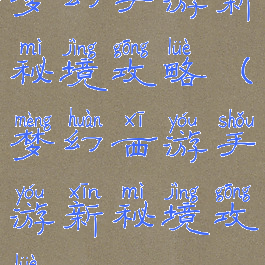 梦 幻 手 游 新
mì jìng gōng lüè
秘 境 攻 略 (
mèng huàn xī yóu shǒu
梦 幻 西 游 手
yóu xīn mì jìng gōng
游 新 秘 境 攻
lüè